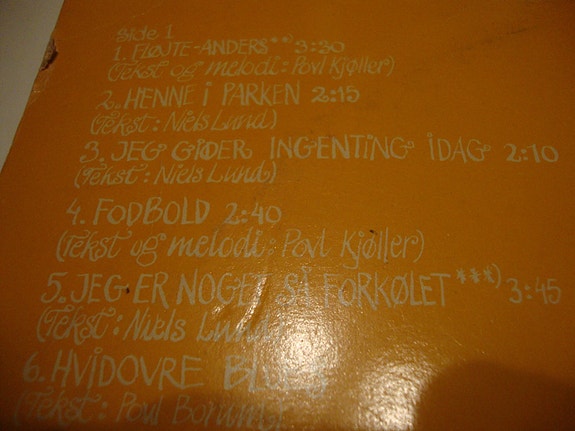 Side 1
1. FLØJTE-ANDERS**) 3:30
(Tekst og melodi: Povl Kjøller)
2. HENNE i PARKEN 2:15
(Tekst: Niels Lund)
3. JEG GIDER INGENTING iDAG 2:10
(Tekst: Niels Lund)
4. FODBOLD 2:40
(Tekst og melodi: Povl Kjøller)
5. JEG ER NOGET SÅ FORKØLET***) 3:45
(Tekst: Niels Lund)
6. HVIDOVRE BLUES
(Tekst: Poul Borum)